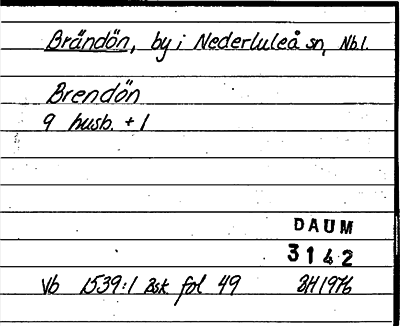 Brändön, by i Nederluleå sn, Nb.l.
Brendön
9 husb. + 1
DAUM
3142
Vb 1539:1 Bsk fol 49 BH 1976